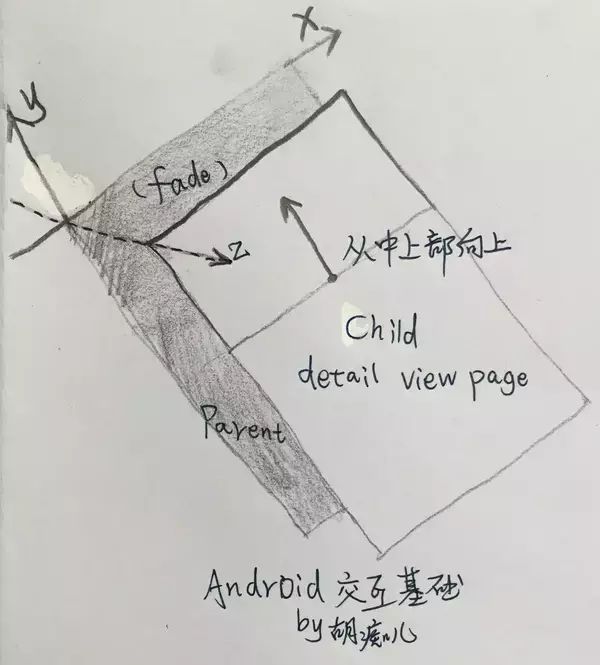 x
y
(fade)
z
从中上部向上
Child
detail view page
Parent
Android 交互基础
by 胡痴儿